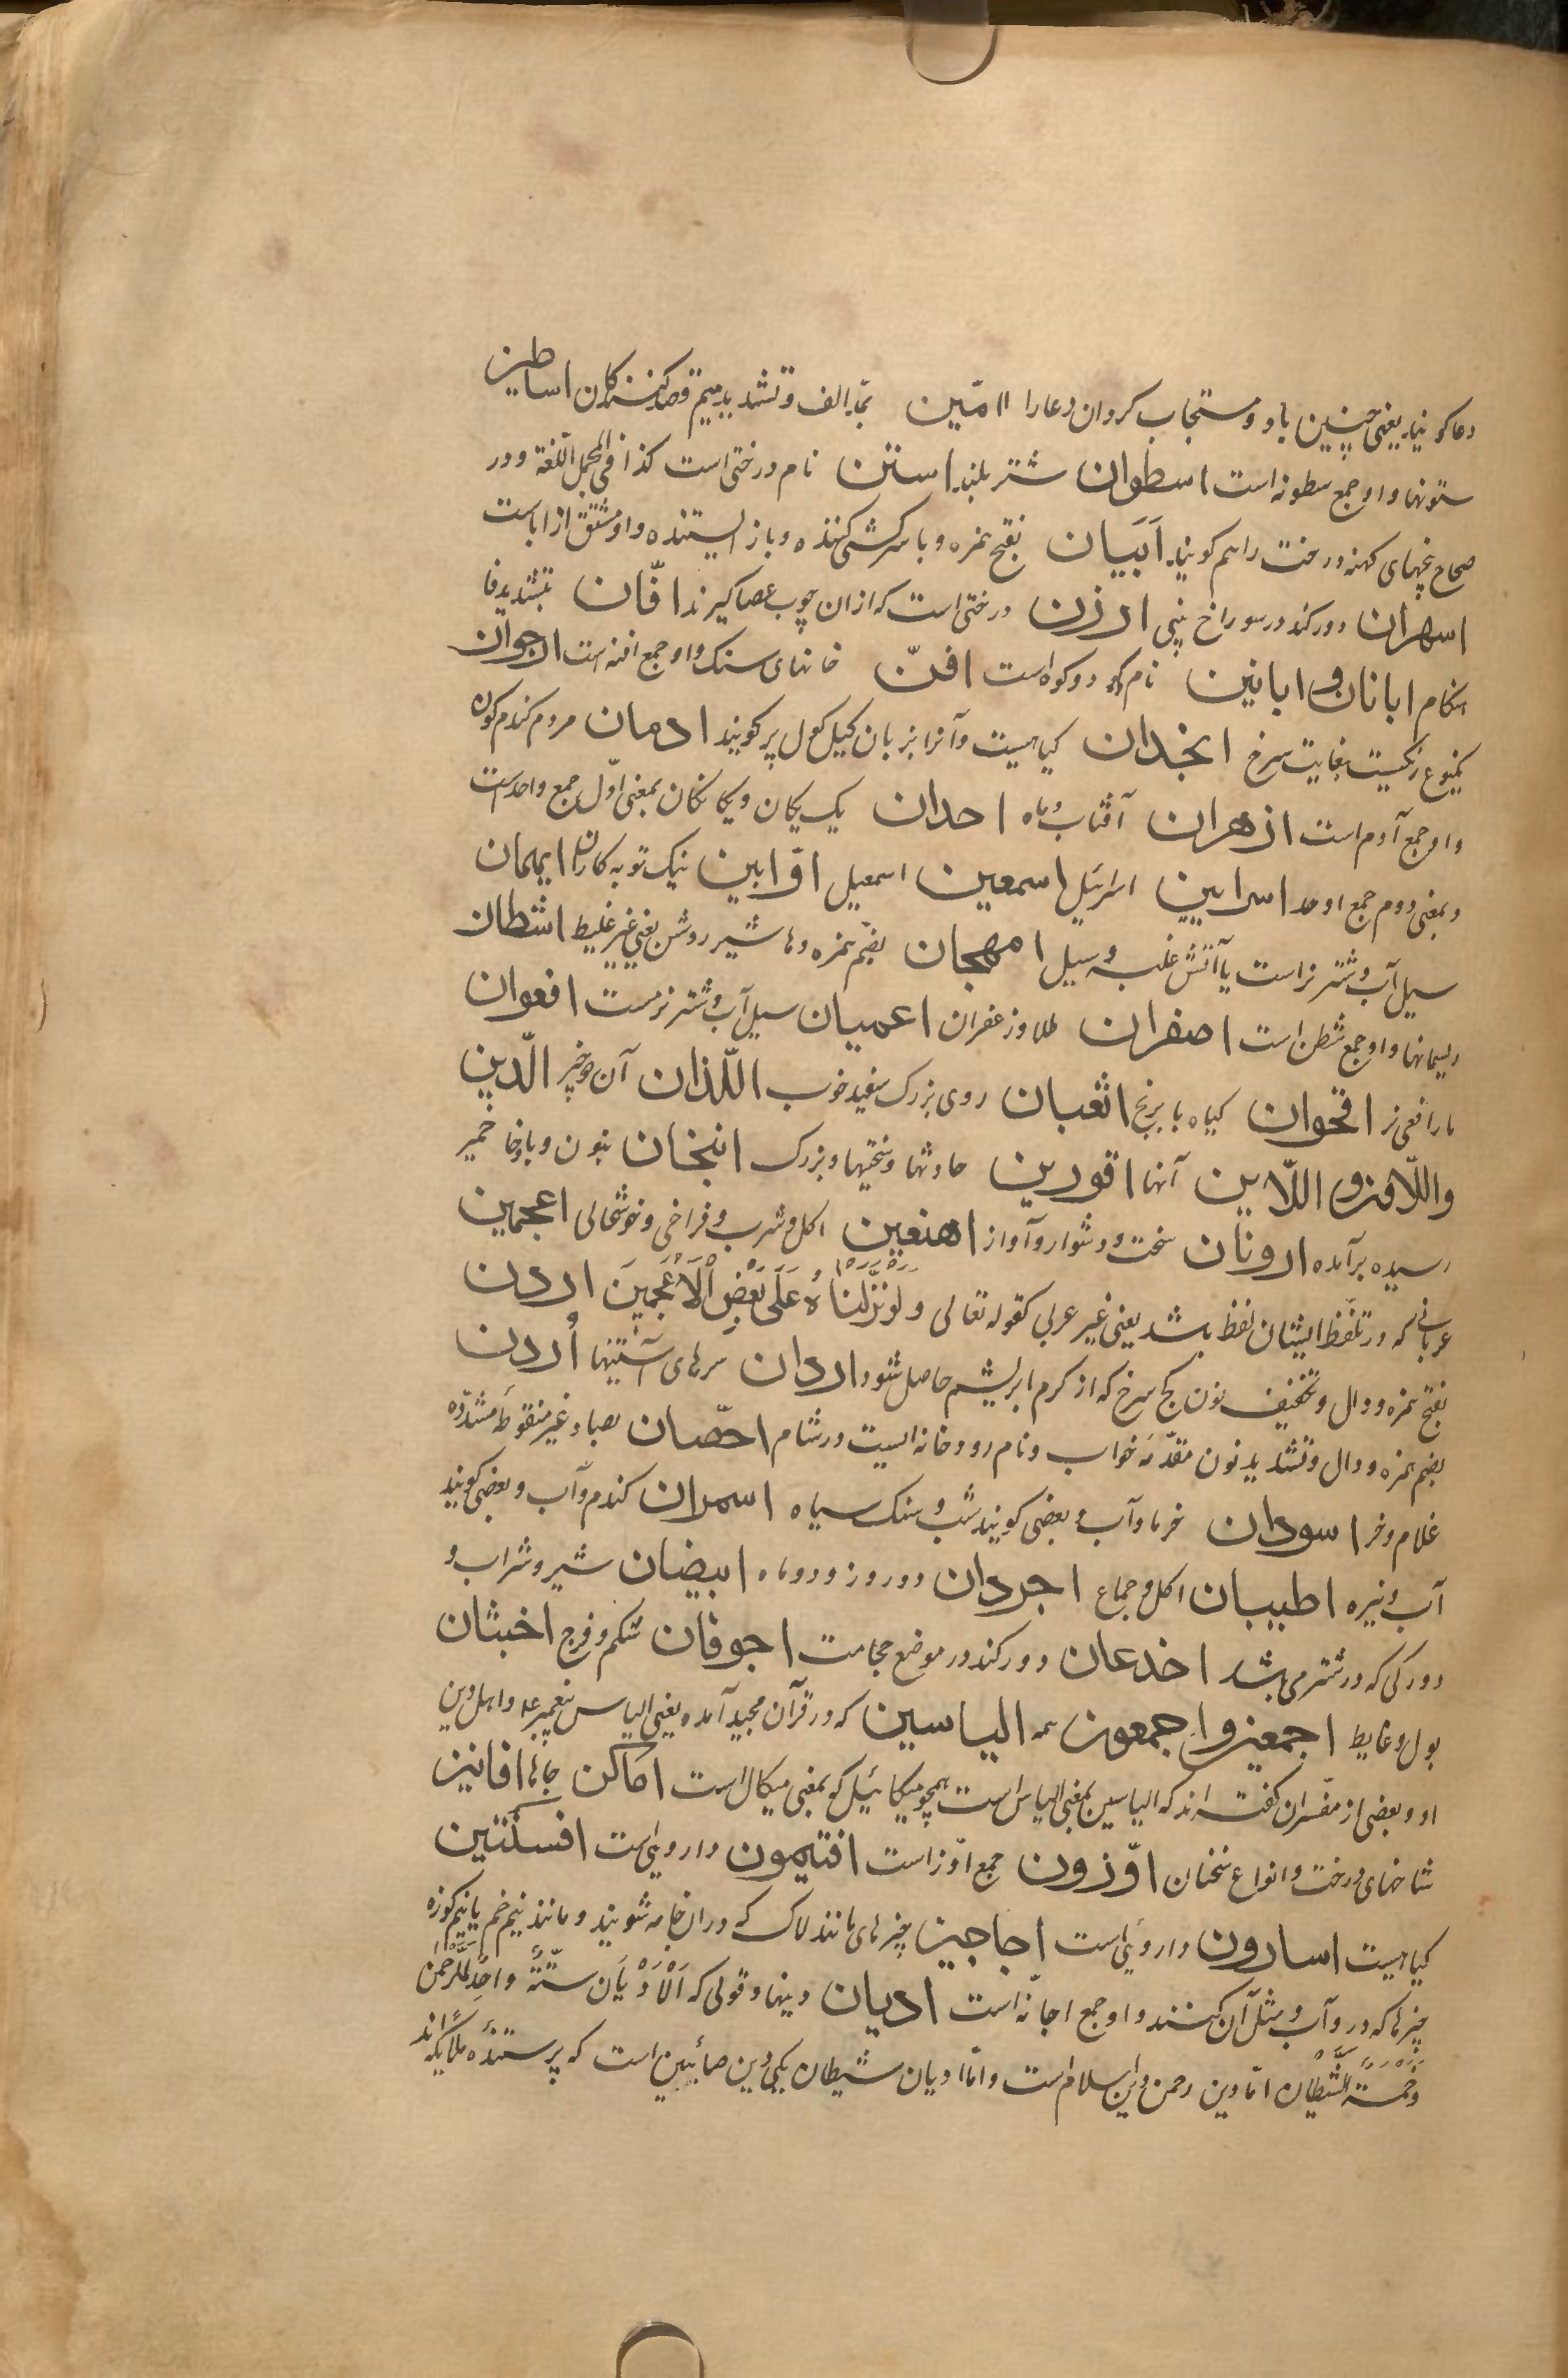 دعا کویند یعنی چنین باد و مستجاب کردان دعا را اامّین بمّد الف و تشدید میم قصد کنندکان اساطین
ستونها و او جمع سطونه است اسطوان شتر بلند استن نام درختی است کذا فی المجمل اللّغة و در
صحاح بیخهای کهنه درخت را هم کویند اَبَیان بفتح همزه و با سرکشی کننده و باز ایستنده و او مشتق از اباست
اسهران دو رکند در سوراخ بینی ارزن درختی است که از ان چوب عصا کیرند افّان بتشدید فا
هنکام ابانان و ابانین نام دو کوه است افنّ خانهای سنک و او جمع افنه است ارجوان
یکنوع رنکیست بغایت سرخ انجذان کیاهیست و آنرا بزبان کیل کول پر کویند ادمان مردم کندم کون
و او جمع آدم است ازهران آفتاب و ماه احدان یک یکان و یکانکان بمعنی اوّل جمع واحد است
و بمعنی دوم جمع اوحد اسرایین اسرائیل اسمعین اسمعیل اوّابین نیک توبه کاران ایهمان
سیل آب و شتر نر است یا آتش غلبه و سیل امهجان بضّم همزه و ها شیر روشن یعنی غیر غلیظ اشطان
ریسمانها و او جمع شطن است اصفران طلا و زعفران اعمیان سیل آب و شتر نر مست افعوان
مار افعی نر اقحوان کیاه بابونج اثعبان روی بزرک سفید خوب اللّذان آن دو چیز الّذین
واللّاؤن و اللّائین آنها اقورین حادثها و سختیها و بزرک انبخان بنون و با و خا خمیر
رسیده برآمده ارونان سخت و دشوار و آواز اهنعین اکل و شرب و فراخی و خوشحالی اعجمین
عربانی که در تلفّظ ایشان لفظ باشد یعنی غیر عربی کقوله تعالی وَلَوْ نَزَّلْنَاهُ عَلَی بَعْضِ الْاَعْجَمِینَ اردن
بفتح همزه و دال و تخفیف نون کج سرخ که از کرم ابریشم حاصل شود اردان سرهای آستینها اُردن
بضم همزه و دال و تشدید نون مقدّمهٔ خواب و نام رودخانه ایست در شام احصّان بصاد غیر منقوطه مشدّده
غلام و خر اسودان خرما و آب و بعضی کویند شب و سنک سیاه اسمران کندم و آب و بعضی کویند
آب و نیزه اطیبان اکل و جماع اجردان دو روز و دو ماه ابیضان شیر و شراب و
دو رکی که در شتر می باشد اخدعان دو رکند در موضع حجامت اجوفان شکم و فرج اخبثان
بول و غایط اجمعین و اجمعون همه الیاسین که در قرآن مجید آمده یعنی الیاس پیغمبر ع و اهل دین
او و بعضی از مفسّران کفته اند که الیاسین بمعنی الیاس است همچو میکائیل که بمعنی میکال است اماکن جایها افانین
شاخهای درخت و انواع سخنان اوّزون جمع اوّز است افتیمون داروئی است افسنتین
کیاهیست اسارون داروئی است اجاجین چیزهای مانند لاک که در ان جامه شویند و مانند نیم خم یا نیم کوزه
چیزها که در و آب و مثل آن کنند و او جمع اجّانه است ادیان دینها و قولی که اَلْاَدْیَان سِتَّةٌ واحِدٌ لِلرَّحْمٰن
وخَمْسَةٌ لِلشَّیْطَان امّا دین رحمن دین اسلام است و امّا ادیان شیطان یکی دین صائبین است که پرستندهٔ ملائکه اند